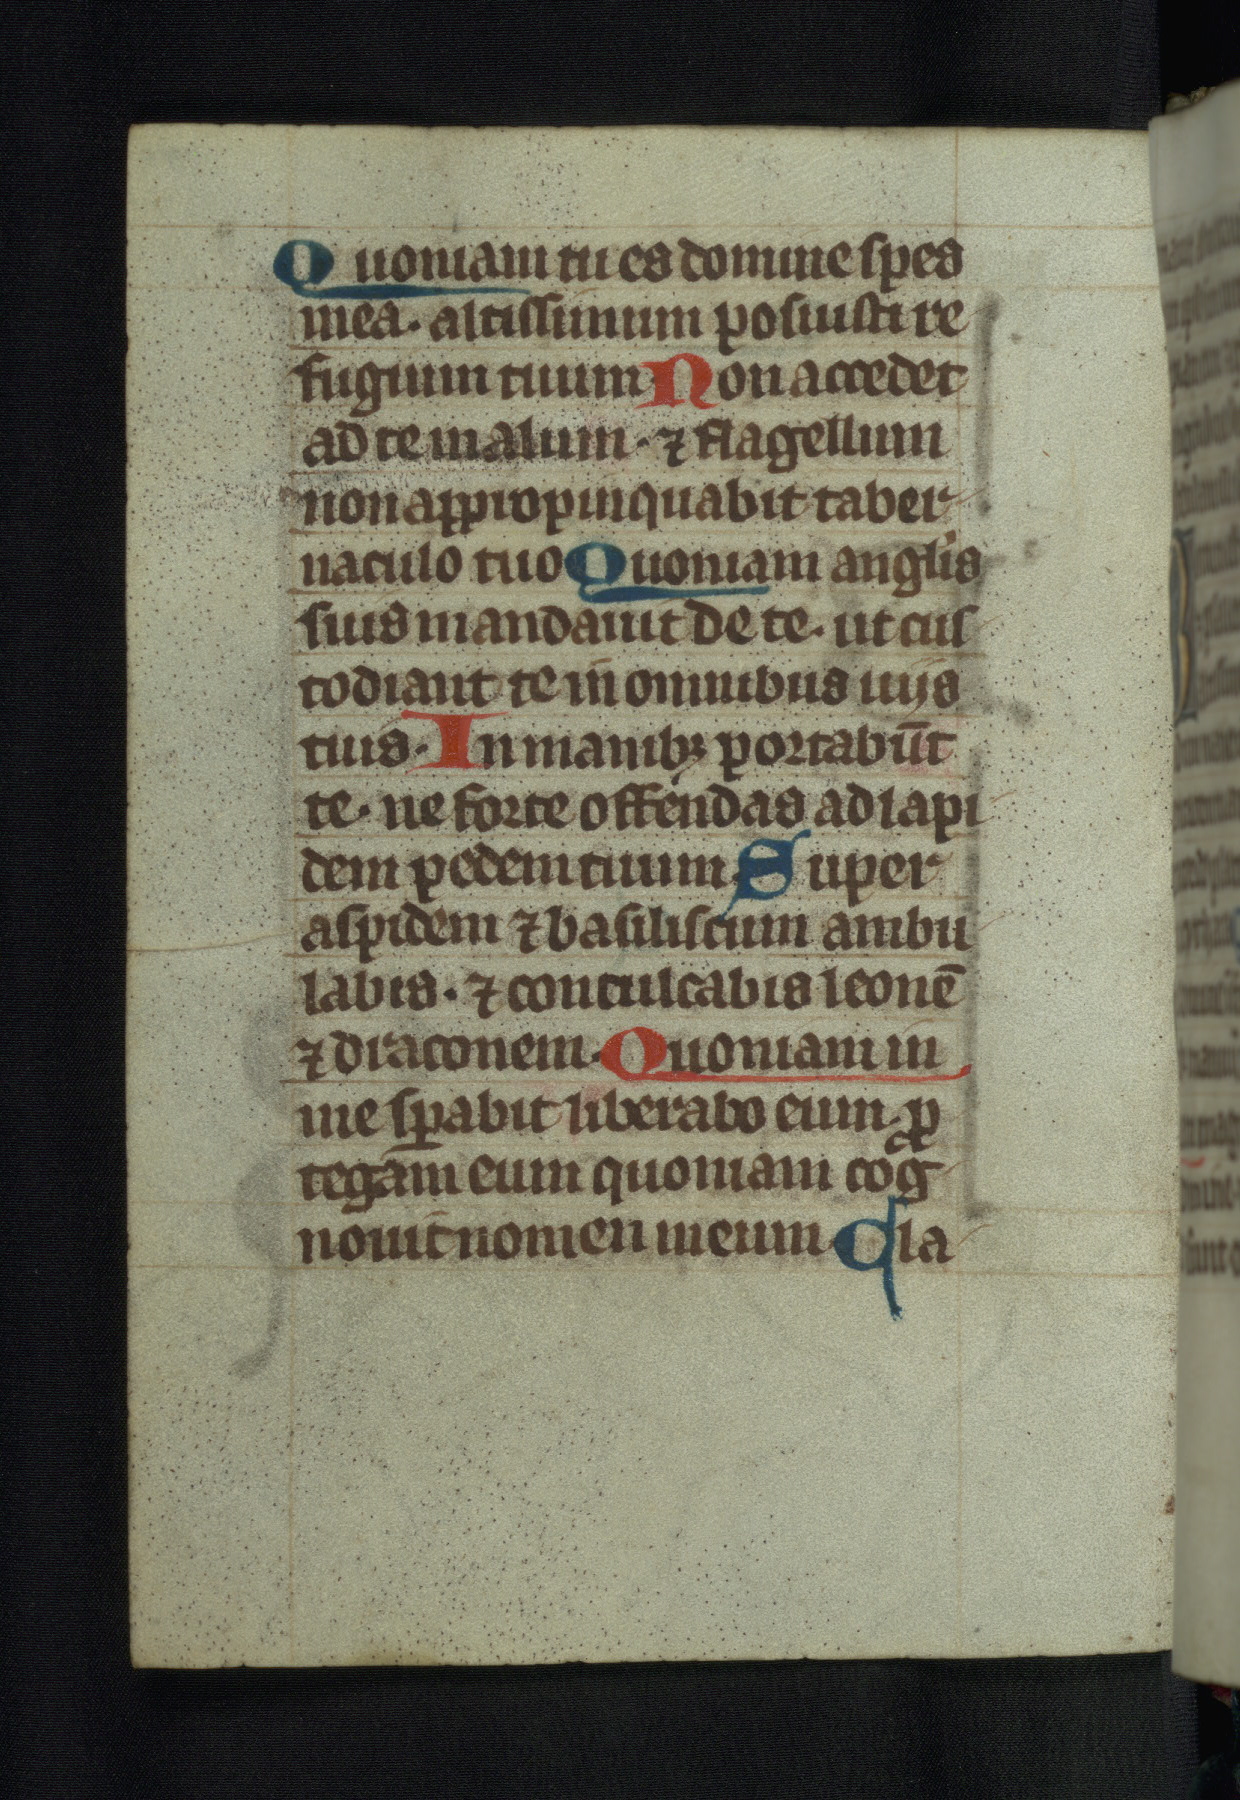 Quoniam tu es domine spes
mea. altissimum posuisti re
fugium tuum Non accedet
ad te malum. ⁊ flagellum
non appropinquabit taber
naculo tuo Quoniam angl'is
suis mandauit de te. ut cus
todiant te in omnibus uijs
tuis. In manibꝫ portabūt
te. ne forte offendas ad lapi
dem pedem tuum. Super
aspidem ⁊ basiliscum ambu
labis. ⁊ conculcabis leonē
⁊ draconem. Quoniam in
me sꝑabit liberabo eum. ꝓ
tegam eum quoniam cog
nouit nomen meum. Cla